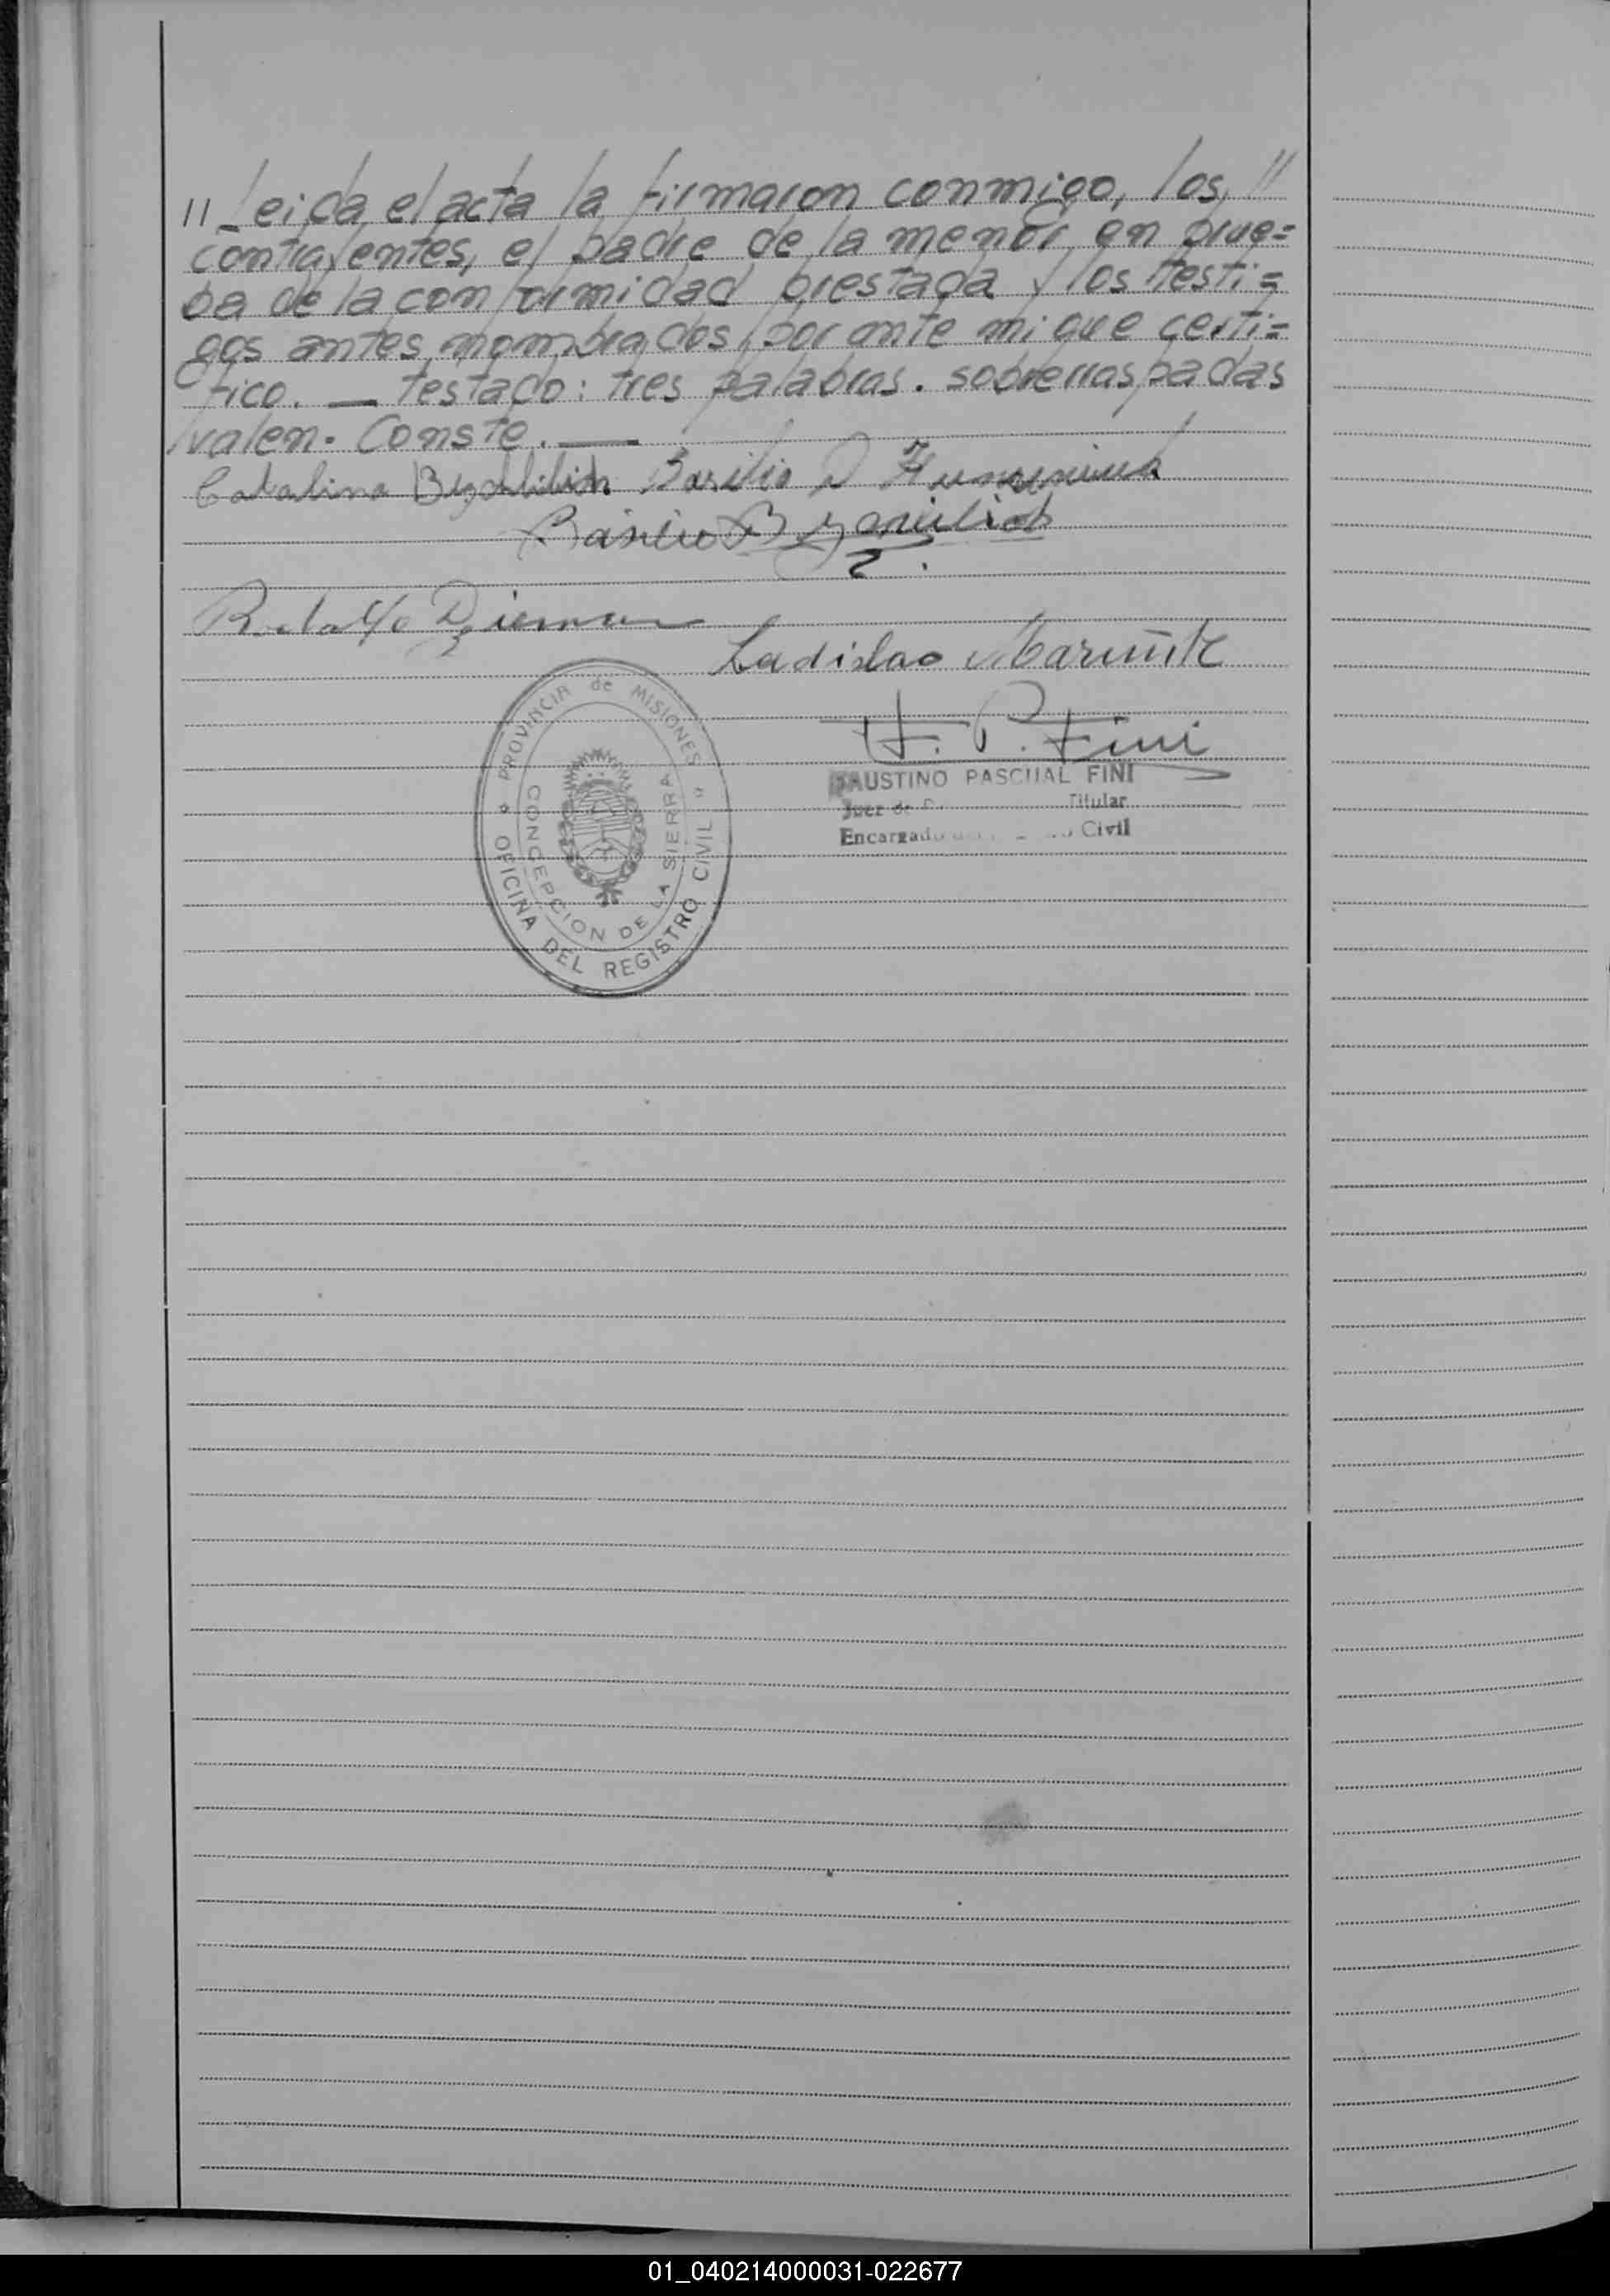 "Leida el acta la firmaron conmigo, los "
contrayentes, el padre de la menor en prue=
ba de la conformidad prestada y los testi=
gos antes nombrados por ante mi que certi=
fico. — Testado: tres palabras. sobrerraspadas
valen. Conste. —
Catalina Basilio
Basilio
Rodolfo
Ladislao
F. P. Fini
PROVINCIA de MISIONES
OFICINA DEL REGISTRO CIVIL
CONCEPCION DE LA SIERRA
FAUSTINO PASCUAL FINI
Juez de Titular
Encargado Civil
01_040214000031-022677